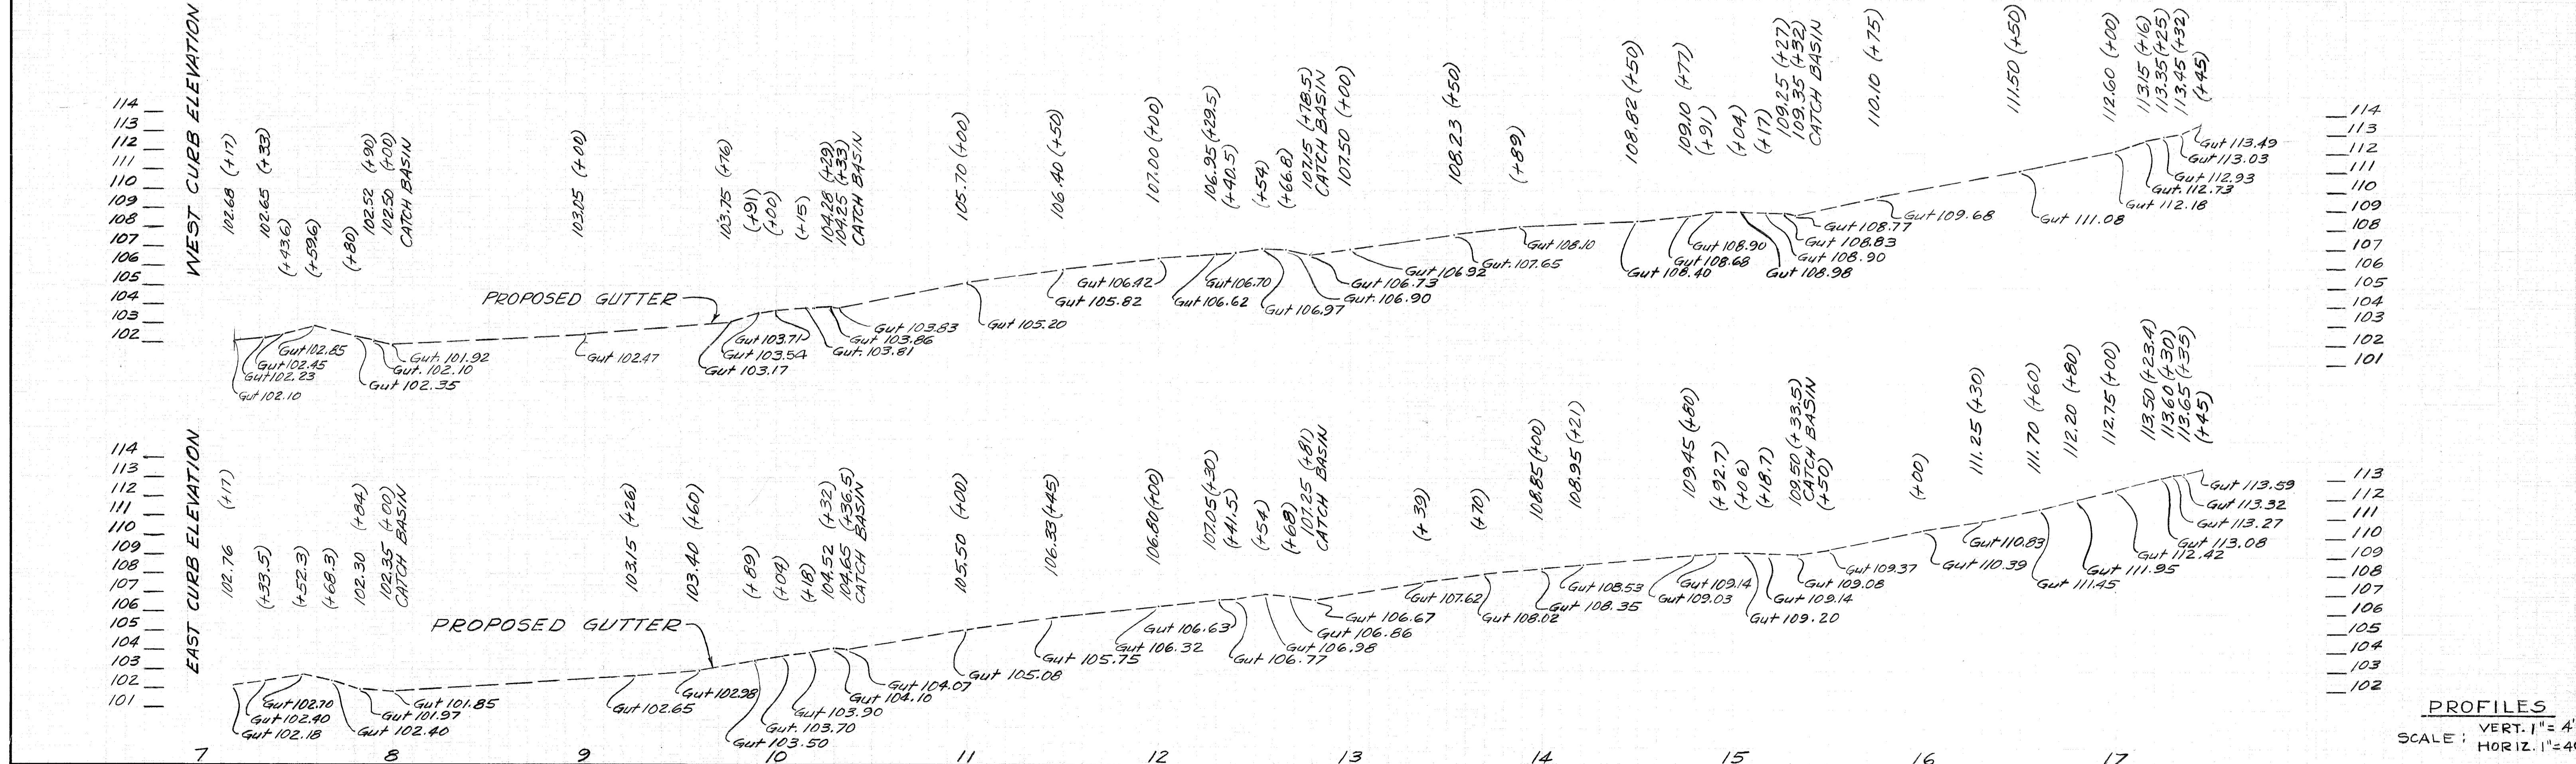 WEST CURB ELEVATION
114
113
112
111
110
109
108
107
106
105
104
103
102
102.68 (+17)
102.65 (+33)
(+43.6)
(+59.6)
(+80)
102.52 (+90)
102.50 (+00)
CATCH BASIN
103.05 (+00)
103.75 (+76)
(+91)
(+00)
(+15)
104.28 (+29)
104.25 (+33)
CATCH BASIN
105.70 (+00)
106.40 (+50)
107.00 (+00)
106.95 (+29.5)
(+40.5)
(+54)
(+66.8)
107.15 (+78.5)
CATCH BASIN
107.50 (+00)
108.23 (+50)
(+89)
108.82 (+50)
109.10 (+77)
(+91)
(+04)
(+17)
109.25 (+27)
109.35 (+32)
CATCH BASIN
110.10 (+75)
111.50 (+50)
112.60 (+00)
113.15 (+16)
113.35 (+25)
113.45 (+32)
(+45)
114
113
112
111
110
109
108
107
106
105
104
103
102
101
PROPOSED GUTTER
Gut 102.10
Gut 102.23
Gut 102.45
Gut 102.85
Gut 102.35
Gut. 102.10
Gut. 101.92
Gut 102.47
Gut 103.17
Gut 103.54
Gut 103.71
Gut. 103.81
Gut 103.86
Gut 103.83
Gut 105.20
Gut 105.82
Gut 106.42
Gut 106.62
Gut 106.70
Gut 106.97
Gut. 106.90
Gut 106.73
Gut 106.92
Gut. 107.65
Gut 108.10
Gut 108.40
Gut 108.68
Gut 108.90
Gut 108.98
Gut 108.90
Gut 108.83
Gut 108.77
Gut 109.68
Gut 111.08
Gut 112.18
Gut. 112.73
Gut 112.93
Gut 113.03
Gut 113.49
EAST CURB ELEVATION
114
113
112
111
110
109
108
107
106
105
104
103
102
101
102.76 (+17)
(+33.5)
(+52.3)
(+68.3)
102.30 (+84)
102.35 (+00)
CATCH BASIN
103.15 (+26)
103.40 (+60)
(+89)
(+04)
(+18)
104.52 (+32)
104.65 (+36.5)
CATCH BASIN
105.50 (+00)
106.33 (+45)
106.80 (+00)
107.05 (+30)
(+41.5)
(+54)
(+68)
107.25 (+81)
CATCH BASIN
(+39)
(+70)
108.85 (+00)
108.95 (+21)
109.45 (+80)
(+92.7)
(+06)
(+18.7)
109.50 (+33.5)
CATCH BASIN
(+50)
(+00)
111.25 (+30)
111.70 (+60)
112.20 (+80)
112.75 (+00)
113.50 (+23.4)
113.60 (+30)
113.65 (+35)
(+45)
113
112
111
110
109
108
107
106
105
104
103
102
PROPOSED GUTTER
Gut 102.18
Gut 102.40
Gut 102.70
Gut 102.40
Gut 101.97
Gut 101.85
Gut 102.65
Gut 102.98
Gut 103.50
Gut. 103.70
Gut 103.90
Gut 104.10
Gut 104.07
Gut 105.08
Gut 105.75
Gut 106.32
Gut 106.63
Gut 106.77
Gut 106.98
Gut 106.86
Gut 106.67
Gut 107.62
Gut 108.02
Gut 108.35
Gut 108.53
Gut 109.03
Gut 109.14
Gut 109.20
Gut 109.14
Gut 109.08
Gut 109.37
Gut 110.39
Gut 110.83
Gut 111.45
Gut 111.95
Gut 112.42
Gut 113.08
Gut 113.27
Gut 113.32
Gut 113.59
7 8 9 10 11 12 13 14 15 16 17
PROFILES
SCALE: VERT. 1"= 4'
HORIZ. 1"=